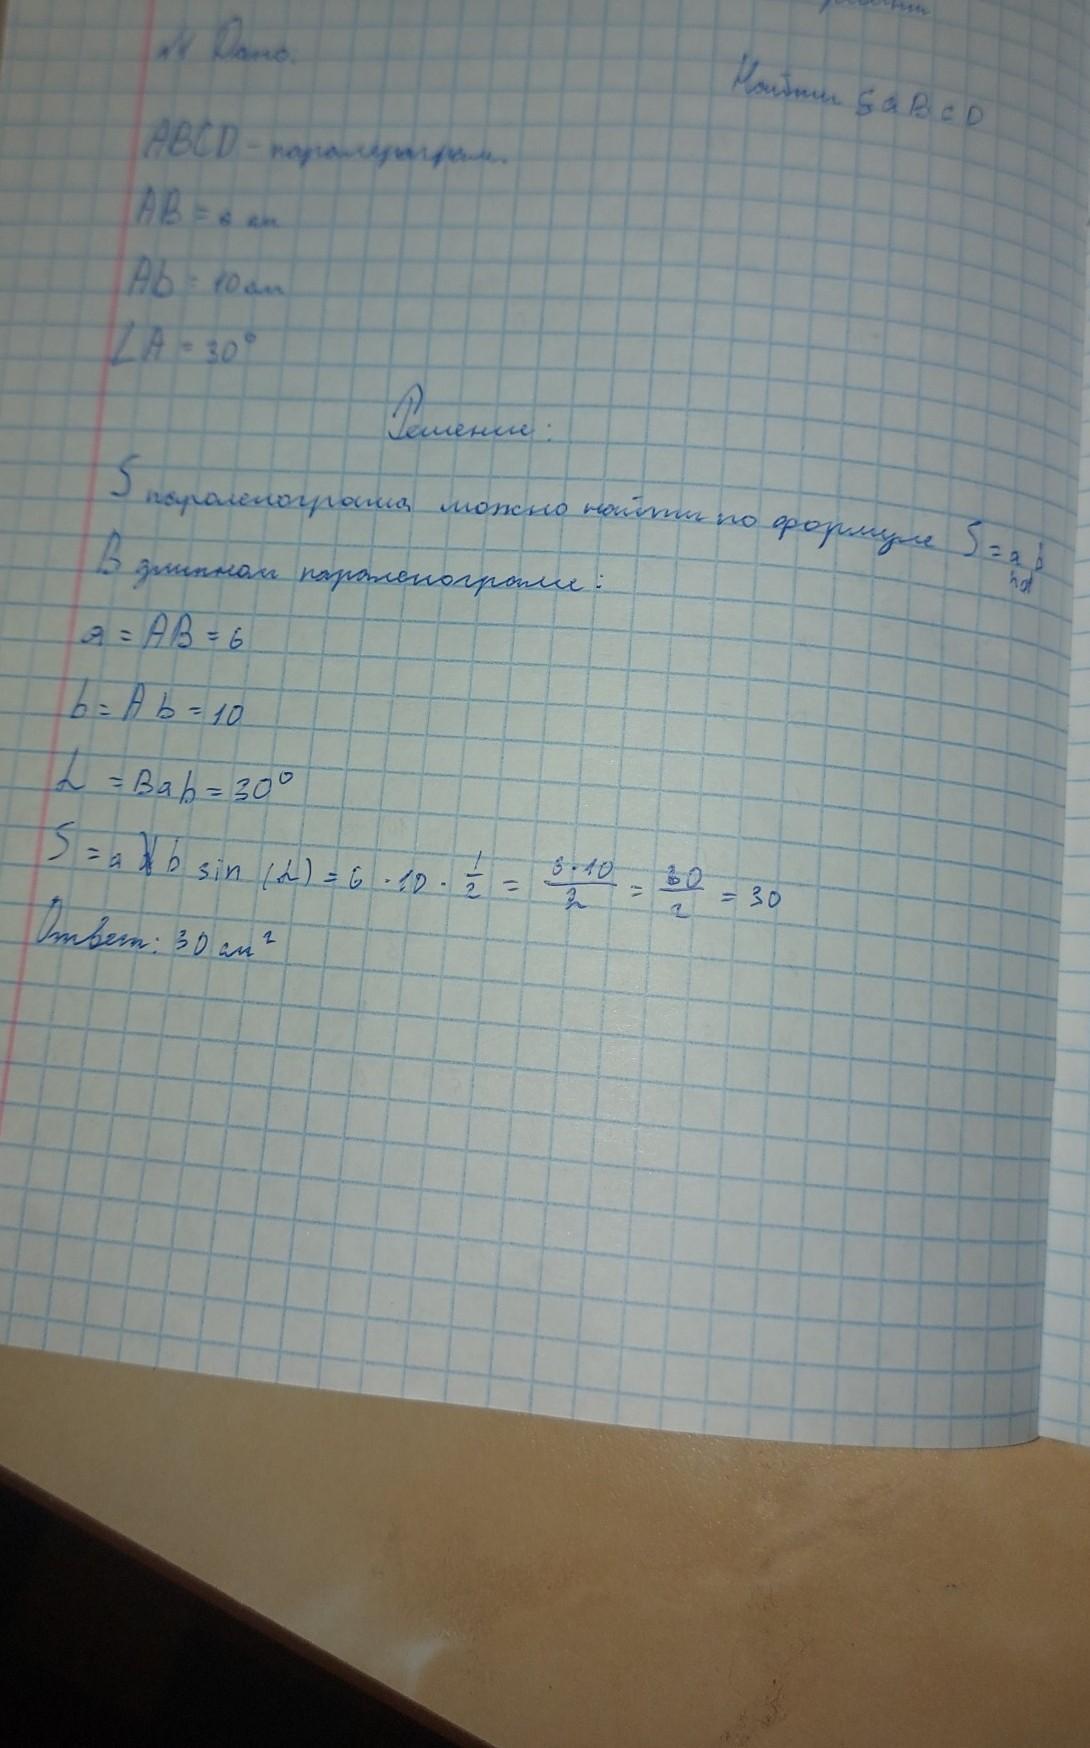 Дано.
Найти SaBCD
ABCD - паралелограм.
AB = 6 см
Ab = 10 см
∠A = 30°
Решение:
S паралелограма можно найти по формуле S = a b
В данном паралелограме:
a = AB = 6
b = Ab = 10
L = Bab = 30°
S = a b sin (L) = 6 · 10 · 1/2 = 6·10/2 = 30/2 = 30
Ответ: 30 см²